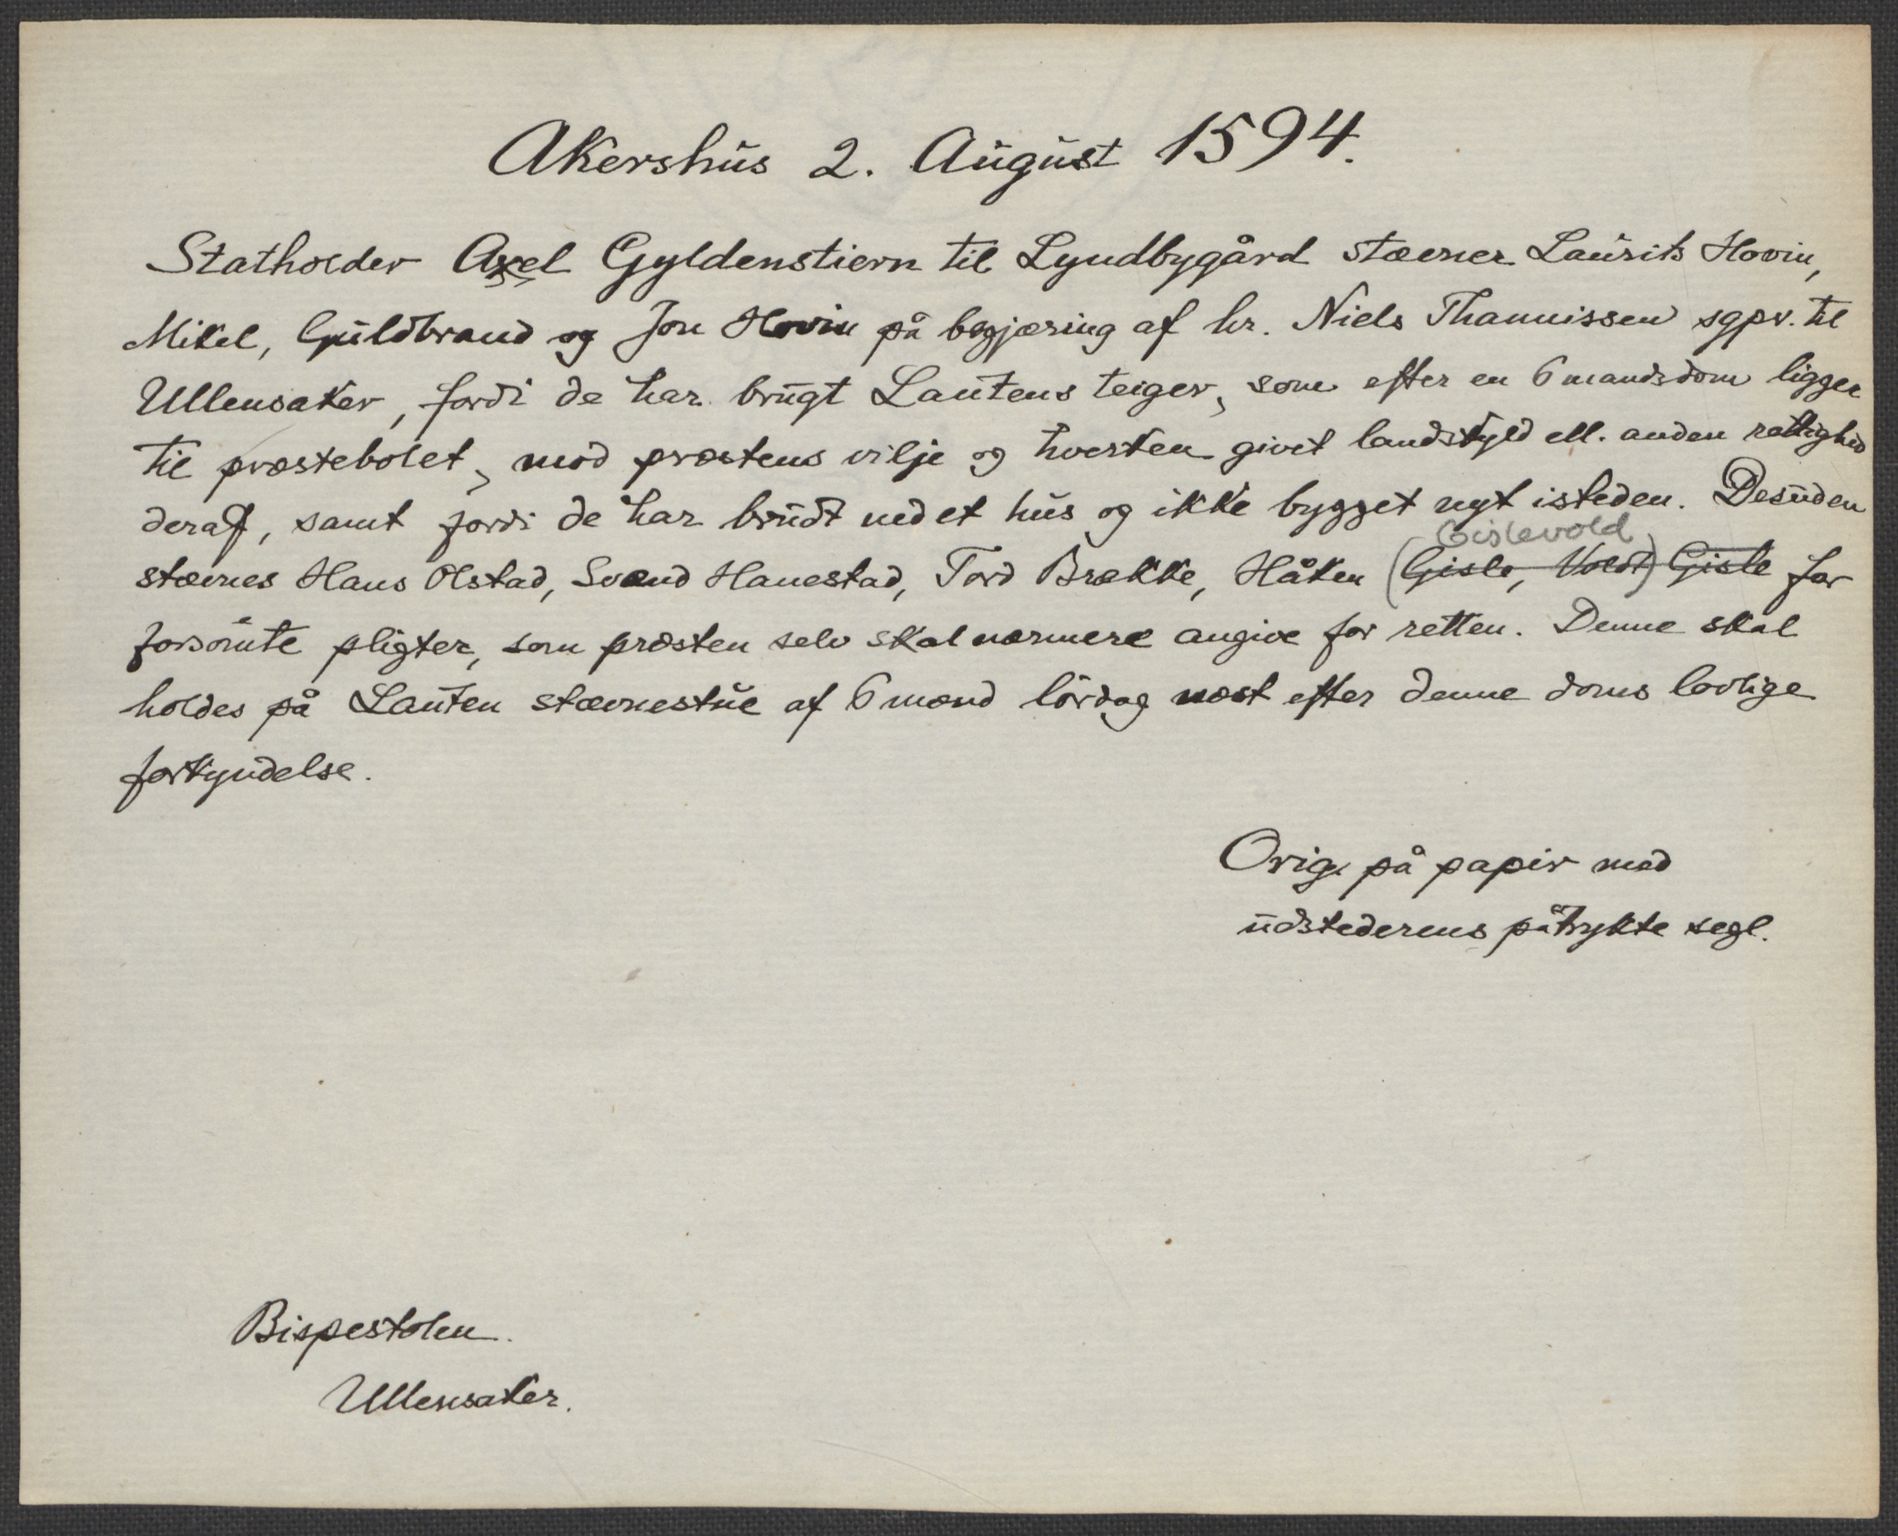 Akershus 2. August 1594.
Statholder Axel Gyldenstiern til Lyndbygård stævner Laurits Hovin,
Mikel, Guldbrand og Jon Hovin på begjæring af hr. Niels Thamnissen sgpr. til
Ullensaker, fordi de har brugt Lautens teiger, som efter en 6 mandsdom ligger
til præstebolet, mod præstens vilje og hverken givet landskyld ell. anden rettighed
deraf, samt fordi de har brudt ned et hus og ikke bygget nyt isteden. Desuden
Gislevold
stævnes Hans Olstad, Svend Hanestad, Tord Brække, Håken (Gisle, Voldt) Gisle for
forsömte pligter, som præsten selv skal nærmere angive for retten. Denne skal
holdes på Lauten stævnestue af 6 mænd lördag næst efter denne doms lovlige
forkyndelse.
Orig. på papir med
udstederens påtrykte segl.
Bispestolen.
Ullensaker.